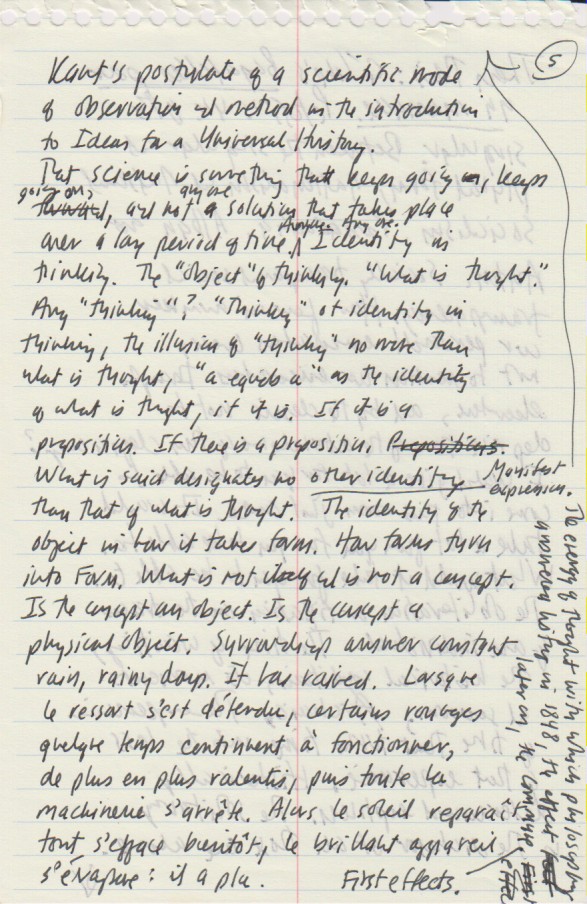 5
Kant's postulate of a scientific mode
of observation and method in the introduction
to Ideas for a Universal History.
That science is something that keeps going on, keeps
going on,
forward, and not a solution that takes place
anyone
over a long period of time. Identity in
Another. Any one.
thinking. The "object" of thinking. "What is thought."
Any "thinking"? "Thinking" of identity in
thinking, the illusion of "thinking" no more than
what is thought, "a equals a" as the identity
of what is thought, if it is. If it is a
proposition. If there is a proposition. Propositions.
What is said designates no other identity
Manifest expression.
than that of what is thought. The identity of the
object in how it takes form. How forms turn
into Form. What is not and is not a concept.
Is the concept an object. Is the concept a
physical object. Surroundings answer constant
rain, rainy days. It has rained. Lorsque
le ressort s'est détendu, certains rouages
quelque temps continuent à fonctionner,
de plus en plus ralentis, puis toute la
machinerie s'arrête. Alors, le soleil reparaît
tout s'efface bientôt, le brillant appareil
s'évapore : il a plu. First effects.
The energy of thought with which philosophy
answered history in 1848, the effect
later on, the Commune. First
effe